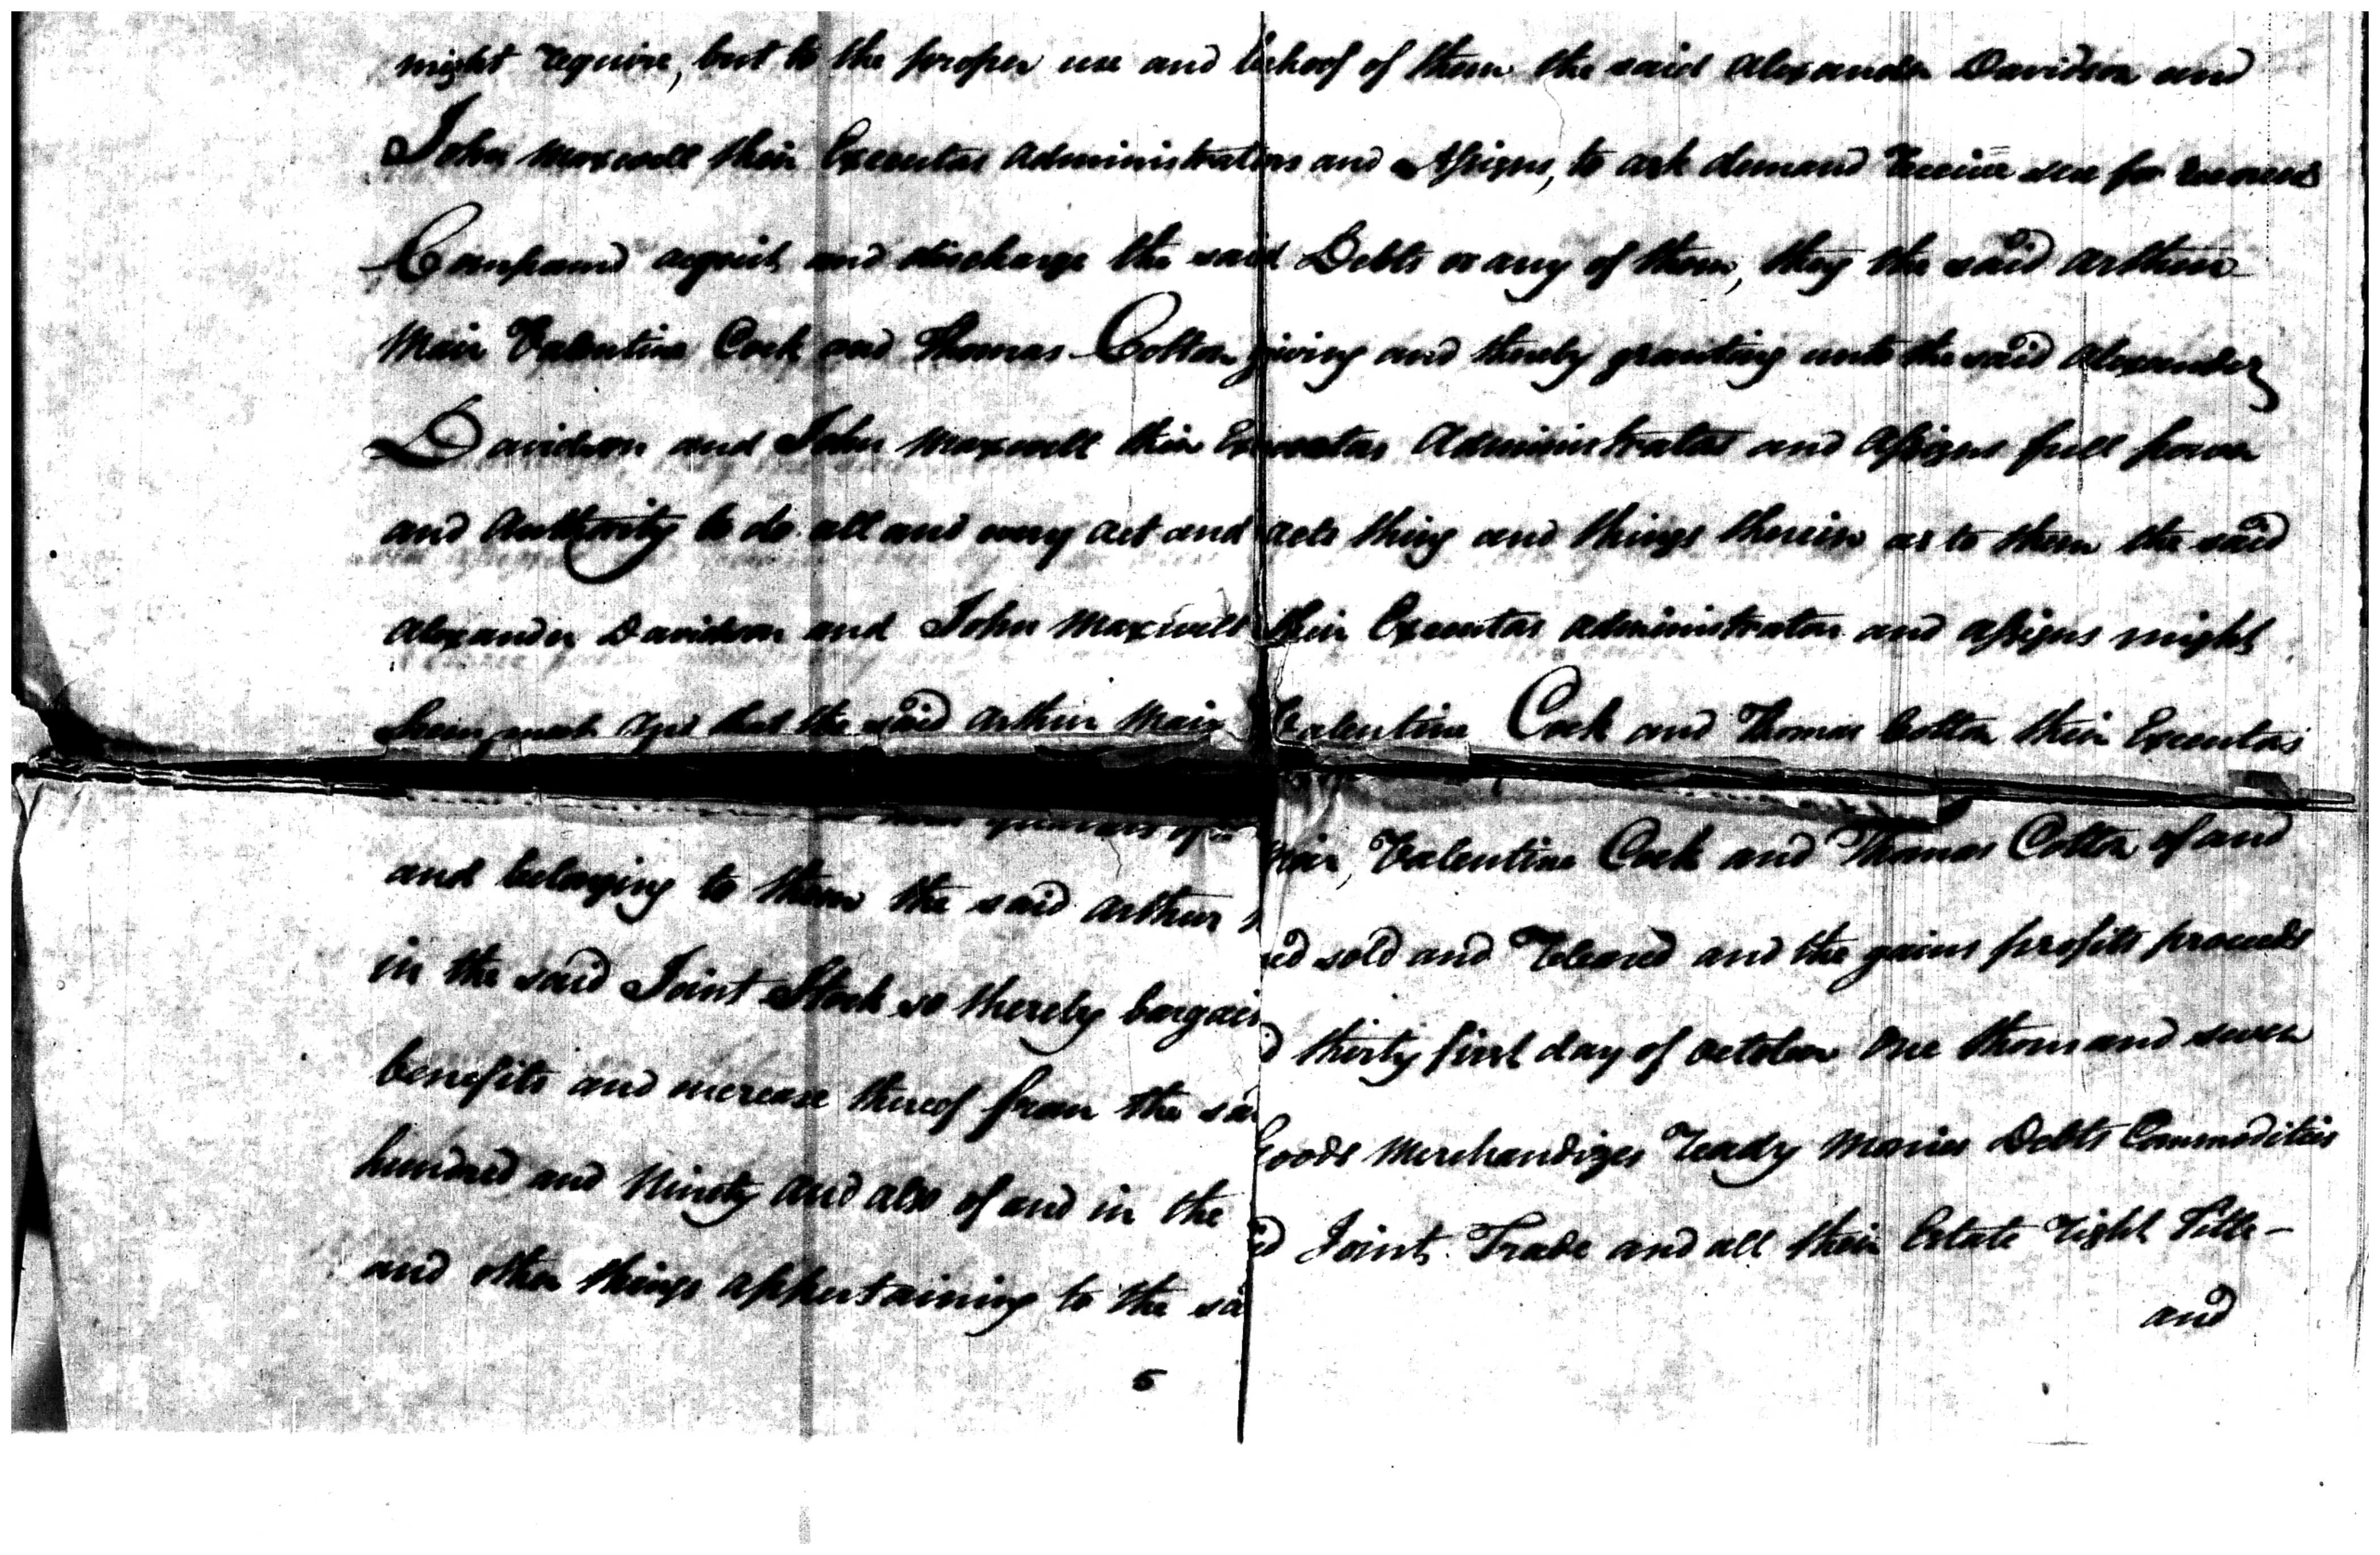 might require, but to the proper use and behoof of them the said Alexander Davidson and
John Maxwell their Executors Administrators and Assigns, to ask demand receive sue for recover
Compound acquit and discharge the said Debts or any of them, they the said Arthur
Mair Valentine Cock and Thomas Cotton giving and thereby granting unto the said Alexander
Davidson and John Maxwell their Executors Administrators and Assigns full power
and Authority to do all and every act and acts thing and things therein as to them the said
Alexander Davidson and John Maxwell their Executors Administrators and Assigns might
Seem meet And that the said Arthur Mair Valentine Cock and Thomas Cotton their Executors
and belonging to them the said Arthur Mair, Valentine Cock and Thomas Cotton of and
in the said Joint Stock so thereby bargained sold and Released and the gains profits proceeds
benefits and increase thereof from the said thirty first day of October One thousand seven
hundred and Ninety and also of and in the Goods Merchandizes Ready Monies Debts Commodities
and other things appertaining to the said Joint Trade and all their Estate right Title -
and
5